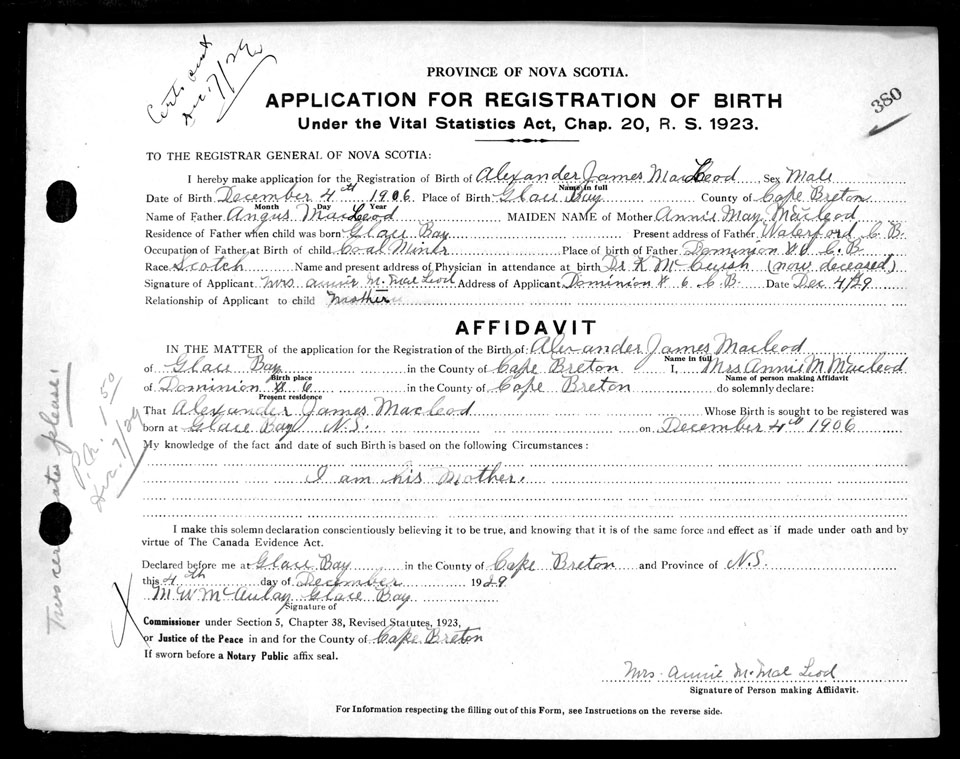 Certs sent
Dec. 7/29
PROVINCE OF NOVA SCOTIA.
APPLICATION FOR REGISTRATION OF BIRTH
380
Under the Vital Statistics Act, Chap. 20, R. S. 1923.
TO THE REGISTRAR GENERAL OF NOVA SCOTIA:
I hereby make application for the Registration of Birth of Alexander James MacLeod Sex Male
Name in full
Date of Birth December 4th 1906 Place of Birth Glace Bay County of Cape Breton
Month Day Year
Name of Father Angus MacLeod MAIDEN NAME of Mother Annie May Macleod
Residence of Father when child was born Glace Bay Present address of Father Waterford C. B.
Occupation of Father at Birth of child Coal Miner Place of birth of Father Dominion C. B.
Race Scotch Name and present address of Physician in attendance at birth Dr K McCuish (now deceased)
Signature of Applicant Mrs Annie M. MacLeod Address of Applicant Dominion # 6 C. B. Date Dec 4/29
Relationship of Applicant to child Mother
AFFIDAVIT
IN THE MATTER of the application for the Registration of the Birth of Alexander James Macleod
Name in full
of Glace Bay in the County of Cape Breton I, Mrs Annie M Macleod
Birth place Name of person making Affidavit
of Dominion # 6 in the County of Cape Breton do solemnly declare:
Present residence
That Alexander James Macleod Whose Birth is sought to be registered was
born at Glace Bay N.S. on December 4th 1906
My knowledge of the fact and date of such Birth is based on the following Circumstances:
I am his Mother.
I make this solemn declaration conscientiously believing it to be true, and knowing that it is of the same force and effect as if made under oath and by
virtue of The Canada Evidence Act.
Declared before me at Glace Bay in the County of Cape Breton and Province of N.S.
this 4th day of December 1929
M W McAulay Glace Bay
Signature of
Commissioner under Section 5, Chapter 38, Revised Statutes, 1923,
or Justice of the Peace in and for the County of Cape Breton
If sworn before a Notary Public affix seal.
Mrs. Annie M. MacLeod
Signature of Person making Affidavit.
For Information respecting the filling out of this Form, see Instructions on the reverse side.
Two please!
P.A. 1.50
Dec. 7/29